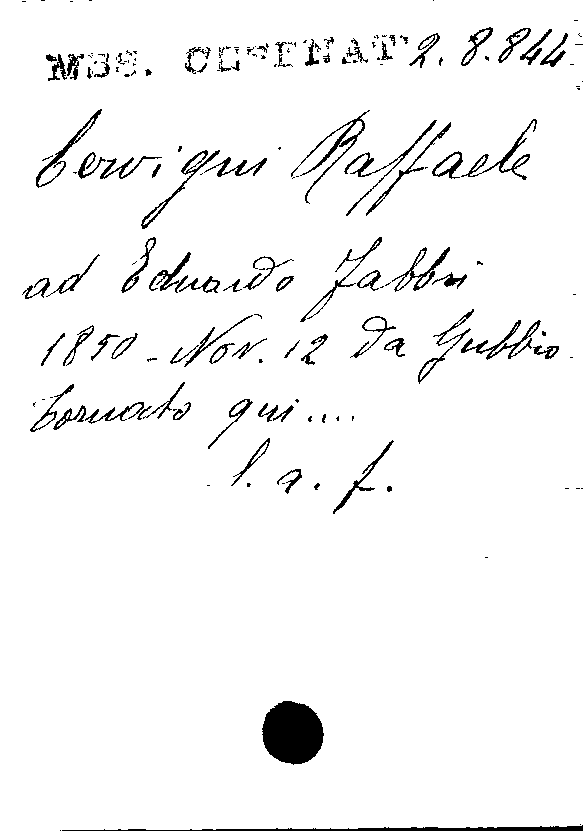 MSS. CESENAT 2.8.844
Cervigni Raffaele
ad Eduardo Fabbri
1850 - Nov. 12 da Gubbio
Tornato qui....
l. a. f.